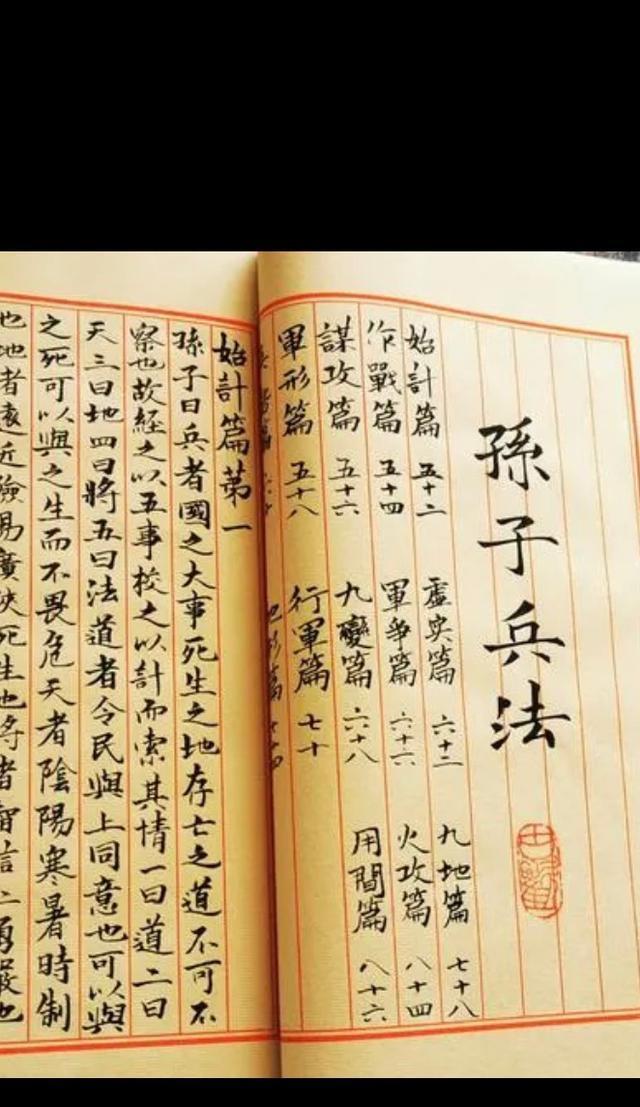 孫子兵法
始計篇 五十二
作戰篇 五十四
謀攻篇 五十六
軍形篇 五十八
虛实篇 六十二
軍爭篇 六十六
九變篇 六十八
行軍篇 七十
地形篇
九地篇 七十八
火攻篇 八十四
用間篇 八十六
始計篇第一
孫子曰兵者國之大事死生之地存亡之道不可不
察也故經之以五事校之以計而索其情一曰道二曰
天三曰地四曰將五曰法道者令民與上同意也可以與
之死可以與之生而不畏危天者陰陽寒暑時制
也地者遠近險易廣狹死生也將者智信仁勇嚴也